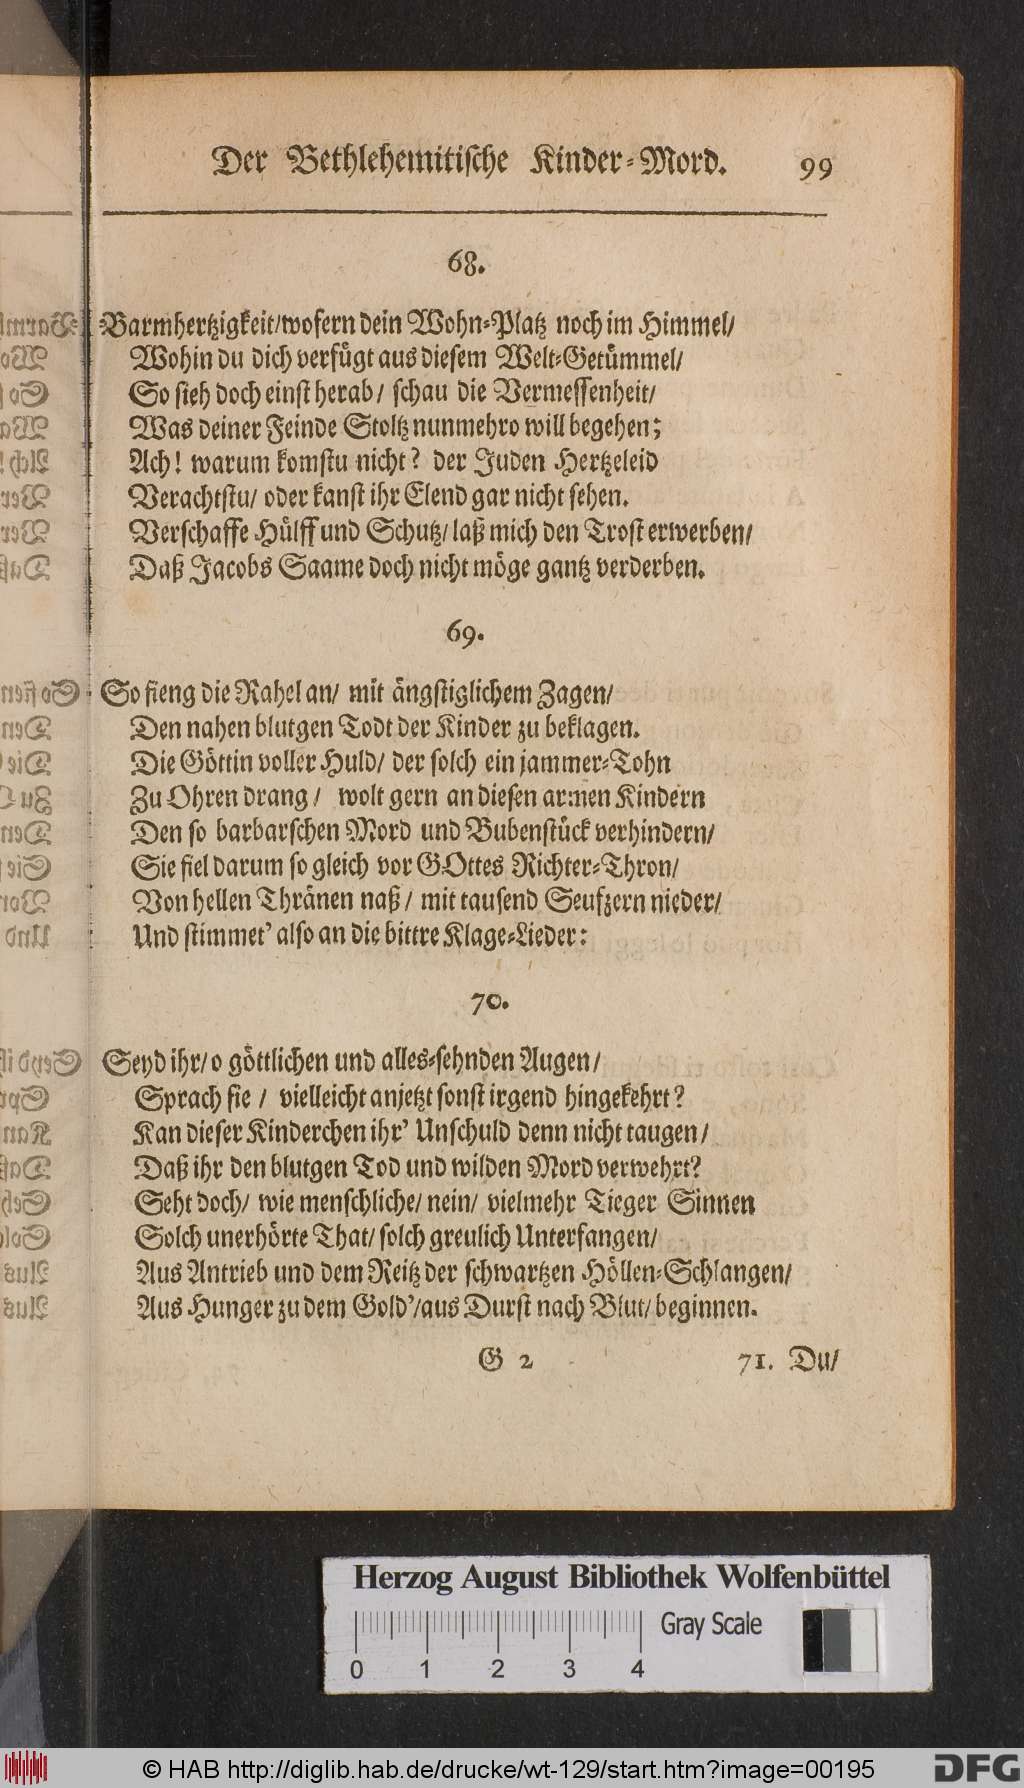 Der Bethlehemitische Kinder-Mord. 99
68.
Barmhertzigkeit/wofern dein Wohn-Platz noch im Himmel/
Wohin du dich verfügt aus diesem Welt-Getümmel/
So sieh doch einst herab/ schau die Vermessenheit/
Was deiner Feinde Stoltz nunmehro will begehen;
Ach! warum komstu nicht? der Juden Hertzeleid
Verachtstu/ oder kanst ihr Elend gar nicht sehen.
Verschaffe Hülff und Schutz/ laß mich den Trost erwerben/
Daß Jacobs Saame doch nicht möge gantz verderben.
69.
So fieng die Rahel an/ mit ängstiglichem Zagen/
Den nahen blutgen Todt der Kinder zu beklagen.
Die Göttin voller Huld/ der solch ein jammer-Tohn
Zu Ohren drang/ wolt gern an diesen armen Kindern
Den so barbarschen Mord und Bubenstück verhindern/
Sie fiel darum so gleich vor GOttes Richter-Thron/
Von hellen Thränen naß/ mit tausend Seufzern nieder/
Und stimmet' also an die bittre Klage-Lieder:
70.
Seyd ihr/ o göttlichen und alles-sehnden Augen/
Sprach sie/ vielleicht anjetzt sonst irgend hingekehrt?
Kan dieser Kinderchen ihr' Unschuld denn nicht taugen/
Daß ihr den blutgen Tod und wilden Mord verwehrt?
Seht doch/ wie menschliche/ nein/ vielmehr Tieger Sinnen
Solch unerhörte That/ solch greulich Unterfangen/
Aus Antrieb und dem Reitz der schwartzen Höllen-Schlangen/
Aus Hunger zu dem Gold'/aus Durst nach Blut/ beginnen.
G 2 71. Du/
Herzog August Bibliothek Wolfenbüttel
Gray Scale
0 1 2 3 4
© HAB http://diglib.hab.de/drucke/wt-129/start.htm?image=00195 DFG